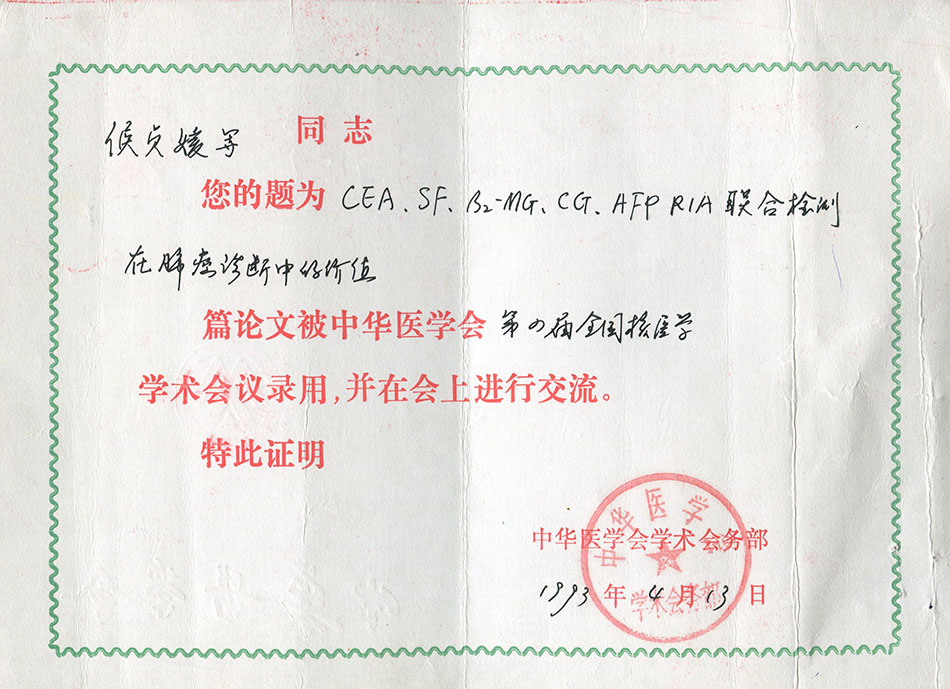 侯贞媛等 同志
您的题为 CEA、SF、β2-MG、CG、AFP RIA 联合检测
在肺癌诊断中的价值
篇论文被中华医学会 第四届全国核医学
学术会议录用,并在会上进行交流。
特此证明
中华医学会
中华医学会学术会务部
学术会务部
1993 年 4 月 13 日